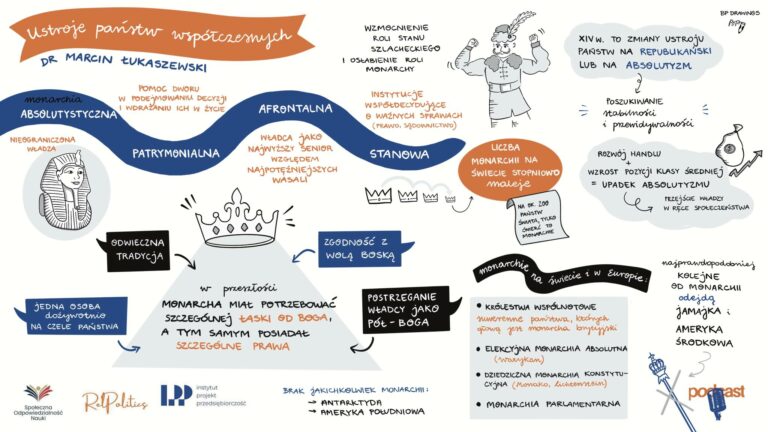 Ustroje państw współczesnych
DR MARCIN ŁUKASZEWSKI
monarchia
ABSOLUTYSTYCZNA
NIEOGRANICZONA
WŁADZA
POMOC DWORU
W PODEJMOWANIU DECYZJI
I WDRAŻANIU ICH W ŻYCIE
PATRYMONIALNA
AFRONTALNA
WŁADCA JAKO
NAJWYŻSZY SENIOR
WZGLĘDEM
NAJPOTĘŻNIEJSZYCH
WASALI
WZMOCNIENIE
ROLI STANU
SZLACHECKIEGO
I OSŁABIENIE ROLI
MONARCHY
INSTYTUCJE
WSPÓŁDECYDUJĄCE
O WAŻNYCH SPRAWACH
(PRAWO, SĄDOWNICTWO)
STANOWA
BP DRAWINGS
XIV W. TO ZMIANY USTROJU
PAŃSTW NA REPUBLIKAŃSKI
LUB NA ABSOLUTYZM
POSZUKIWANIE
stabilności
i przewidywalności
ROZWÓJ HANDLU
+
WZROST POZYCJI KLASY ŚREDNIEJ
= UPADEK ABSOLUTYZMU
PRZEJŚCIE WŁADZY
W RĘCE SPOŁECZEŃSTWA
LICZBA
MONARCHII NA
ŚWIECIE STOPNIOWO
maleje
NA OK. 200
PAŃSTW
ŚWIATA, TYLKO
ŚWIERĆ TO
MONARCHIE
ODWIECZNA
TRADYCJA
ZGODNOŚĆ Z
WOLĄ BOSKĄ
JEDNA OSOBA
dożywotnio
NA CZELE PAŃSTWA
POSTRZEGANIE
WŁADCY JAKO
PÓŁ-BOGA
w przeszłości
MONARCHA MIAŁ POTRZEBOWAĆ
SZCZEGÓLNEJ ŁASKI OD BOGA,
A TYM SAMYM POSIADAŁ
SZCZEGÓLNE PRAWA
monarchie na świecie i w Europie:
• KRÓLESTWA WSPÓLNOTOWE
suwerenne państwa, których
głową jest monarcha brytyjski
• ELEKCYJNA MONARCHIA ABSOLUTNA
(Watykan)
• DZIEDZICZNA MONARCHIA KONSTYTU-
CYJNA (Monako, Luksemburg)
• MONARCHIA PARLAMENTARNA
najprawdopodobniej
KOLEJNE
OD MONARCHII
odejdą
JAMAJKA i
AMERYKA
ŚRODKOWA
podcast
Społeczna
Odpowiedzialność
Nauki
RelPolitics
LPP instytut
projekt
przedsiębiorczość
BRAK JAKICHKOLWIEK MONARCHII:
→ ANTARKTYDA
→ AMERYKA POŁUDNIOWA